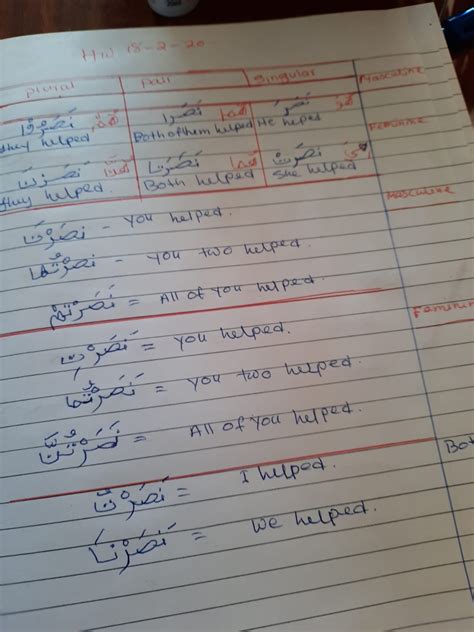 HW 18-2-20
plural Pair Singular Masculine
نَصَرُوْا هُمْ نَصَرَا هُمَا نَصَرَ هُوَ
they helped Both of them helped He helped
Feminine
نَصَرْنَ هُنَّ نَصَرَتَا هُمَا نَصَرَتْ هِيَ
they helped Both helped She helped
Masculine
نَصَرْتَ - you helped.
نَصَرْتُمَا - you two helped.
نَصَرْتُمْ = All of you helped.
Feminine
نَصَرْتِ = you helped.
نَصَرْتُمَا = you two helped.
نَصَرْتُنَّ = All of you helped.
Bot
نَصَرْتُ = I helped.
نَصَرْنَا = we helped.